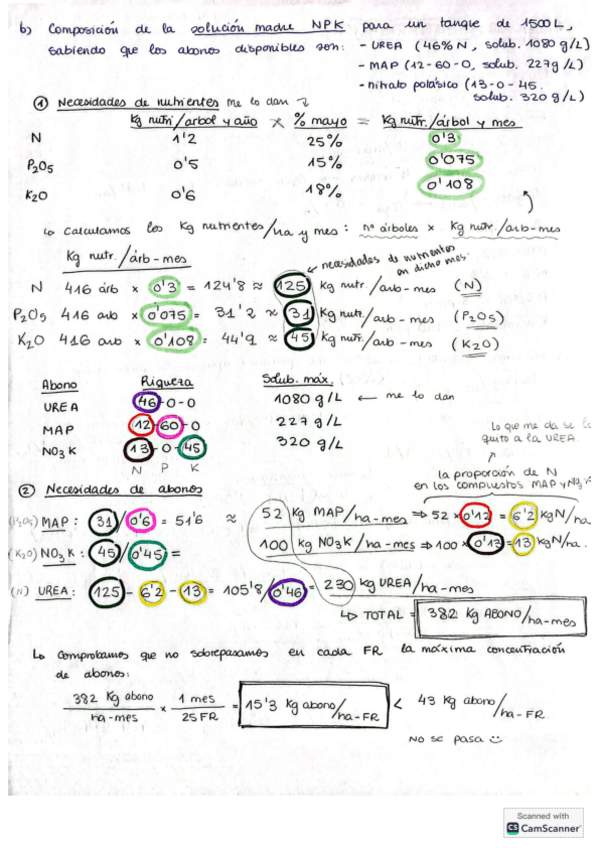 b) Composición de la solución madre NPK para un tanque de 1500 L,
sabiendo que los abonos disponibles son: - UREA (46% N, solub. 1080 g/L)
- MAP (12-60-0, solub. 227 g/L)
- nitrato potásico (13-0-45.
solub. 320 g/L)
① Necesidades de nutrientes me lo dan
Kg nutri/arbol y año × % mayo = Kg nutr./árbol y mes
N 1'2 25% 0'3
P2O5 0'5 15% 0'075
K2O 0'6 18% 0'108
↳ Calculamos los Kg nutrientes/ha y mes: nº árboles × Kg nutr/arb-mes
Kg nutr./árb-mes
← necesidades de nutrientes
en dicho mes.
N 416 árb × 0'3 = 124'8 ≈ 125 Kg nutr/arb-mes (N)
P2O5 416 arb × 0'075 = 31'2 ≈ 31 Kg nutr/arb-mes (P2O5)
K2O 416 arb × 0'108 = 44'9 ≈ 45 Kg nutr/arb-mes (K2O)
Abono Riqueza Solub. máx.
UREA 46-0-0 1080 g/L ← me lo dan
MAP 12-60-0 227 g/L
NO3K 13-0-45 320 g/L
N P K
Lo que me da se lo
quito a la UREA.
la proporción de N
en los compuestos MAP y NO3K
② Necesidades de abonos
(P2O5) MAP: 31/0'6 = 51'6 ≈ 52 kg MAP/ha-mes ⇒ 52 × 0'12 = 6'2 kgN/ha.
(K2O) NO3K: 45/0'45 = 100 kg NO3K/ha-mes ⇒ 100 × 0'13 = 13 kgN/ha.
(N) UREA: 125 - 6'2 - 13 = 105'8/0'46 = 230 kg UREA/ha-mes
↳ TOTAL = 382 Kg ABONO/ha-mes
↳ Comprobamos que no sobrepasamos en cada FR la máxima concentración
de abonos:
382 Kg abono/ha-mes × 1 mes/25 FR = 15'3 Kg abono/ha-FR < 43 Kg abono/ha-FR
NO se pasa ☺
Scanned with
CS CamScanner